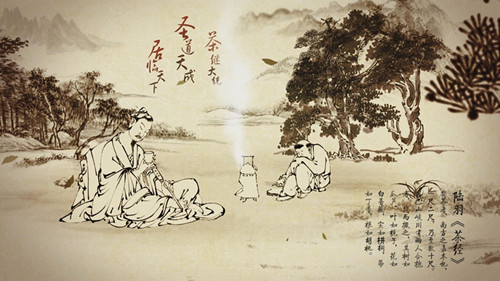 茶继大统
圣道天成
居临天下
陆羽《茶经》
茶者，南方之嘉木也，
一尺二尺，乃至数十尺。
其巴山峡川有两人合抱
者，伐而掇之，其树如
瓜芦，叶如栀子，花如
白蔷薇，实如栟榈，蒂
如丁香，根如胡桃。